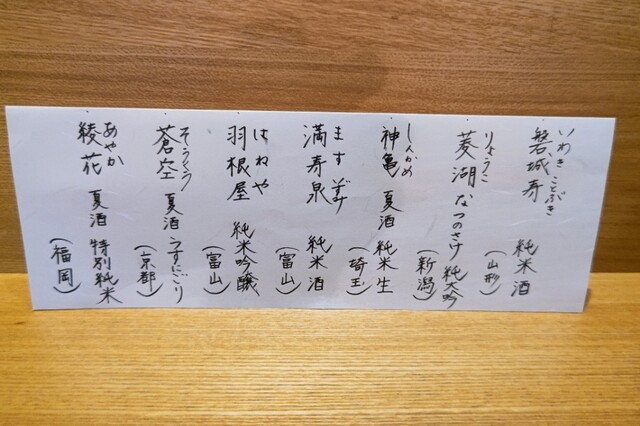 いわきことぶき
磐城寿 純米酒
(山形)
りょうこ
菱湖 なつのさけ 純大吟
(新潟)
しんかめ
神亀 夏酒 純米生
(埼玉)
ますいずみ
満寿泉 純米酒
(富山)
はねや
羽根屋 純米吟醸
(富山)
そうくう
蒼空 夏酒 うすにごり
(京都)
あやか
綾花 夏酒 特別純米
(福岡)